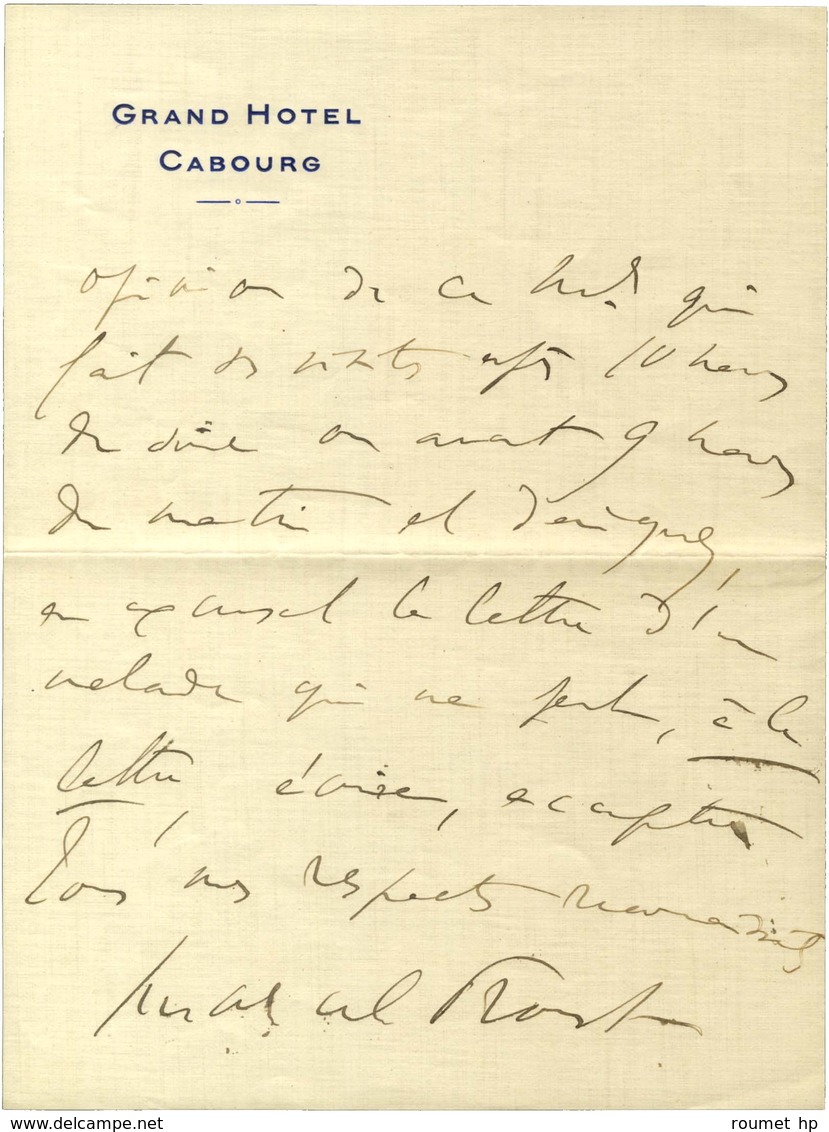 GRAND HOTEL
CABOURG
opinion de ce qui
fait des visites après 10 heures
du soir ou avant 9 heures
du matin et daignez,
en excusant la lettre d'un
malade qui ne peut, à la
lettre, écrire, accepter
tous mes respects reconnaissants
Marcel Proust
www.delcampe.net
roumet hp